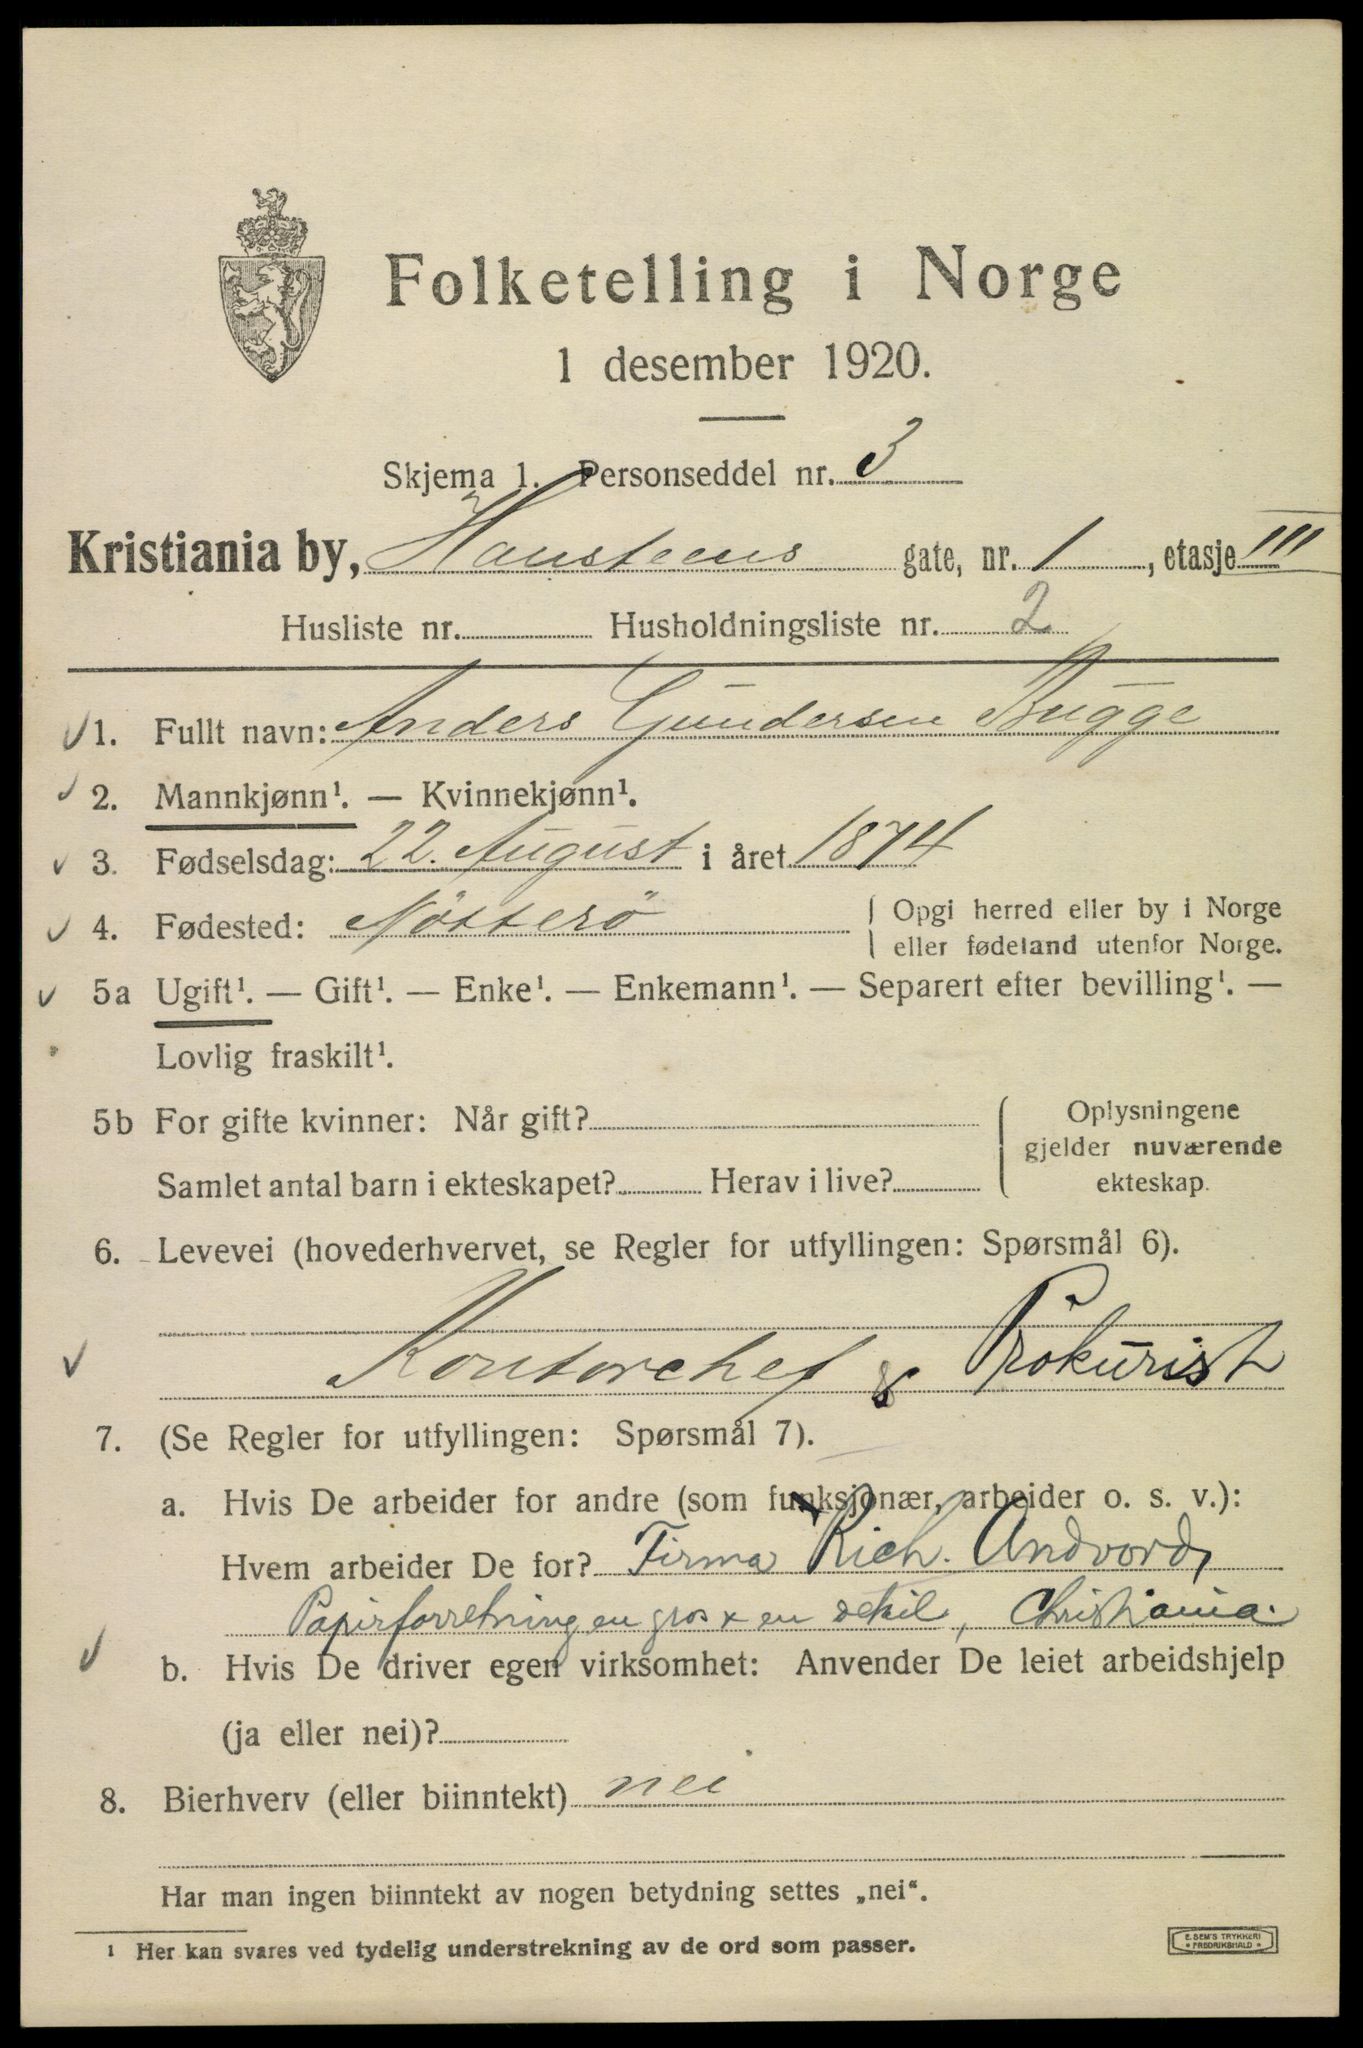 Folketelling i Norge
1 desember 1920.
Skjema 1. Personseddel nr. 3
Kristiania by, Hansteens gate, nr. 1, etasje III
Husliste nr. Husholdningsliste nr. 2
1. Fullt navn: Anders Gundersen Bugge
2. Mannkjønn¹. — Kvinnekjønn¹.
3. Fødselsdag: 22. August i året 1874
4. Fødested: Nötterö { Opgi herred eller by i Norge
eller fødeland utenfor Norge.
5a Ugift¹. — Gift¹. — Enke¹. — Enkemann¹. — Separert efter bevilling¹. —
Lovlig fraskilt¹.
5b For gifte kvinner: Når gift? { Oplysningene
gjelder nuværende
Samlet antal barn i ekteskapet? Herav i live? ekteskap.
6. Levevei (hovederhvervet, se Regler for utfyllingen: Spørsmål 6).
Kontorchef & Prokurist
7. (Se Regler for utfyllingen: Spørsmål 7).
a. Hvis De arbeider for andre (som funksjonær, arbeider o. s. v.):
Hvem arbeider De for? Firma Rich. Andvord,
Papirforretning en gros & en detail, Christiania.
b. Hvis De driver egen virksomhet: Anvender De leiet arbeidshjelp
(ja eller nei)?
8. Bierhverv (eller biinntekt) nei
Har man ingen biinntekt av nogen betydning settes „nei“.
¹ Her kan svares ved tydelig understrekning av de ord som passer.
E. SEM'S TRYKKERI
* FREDRIKSHALD *